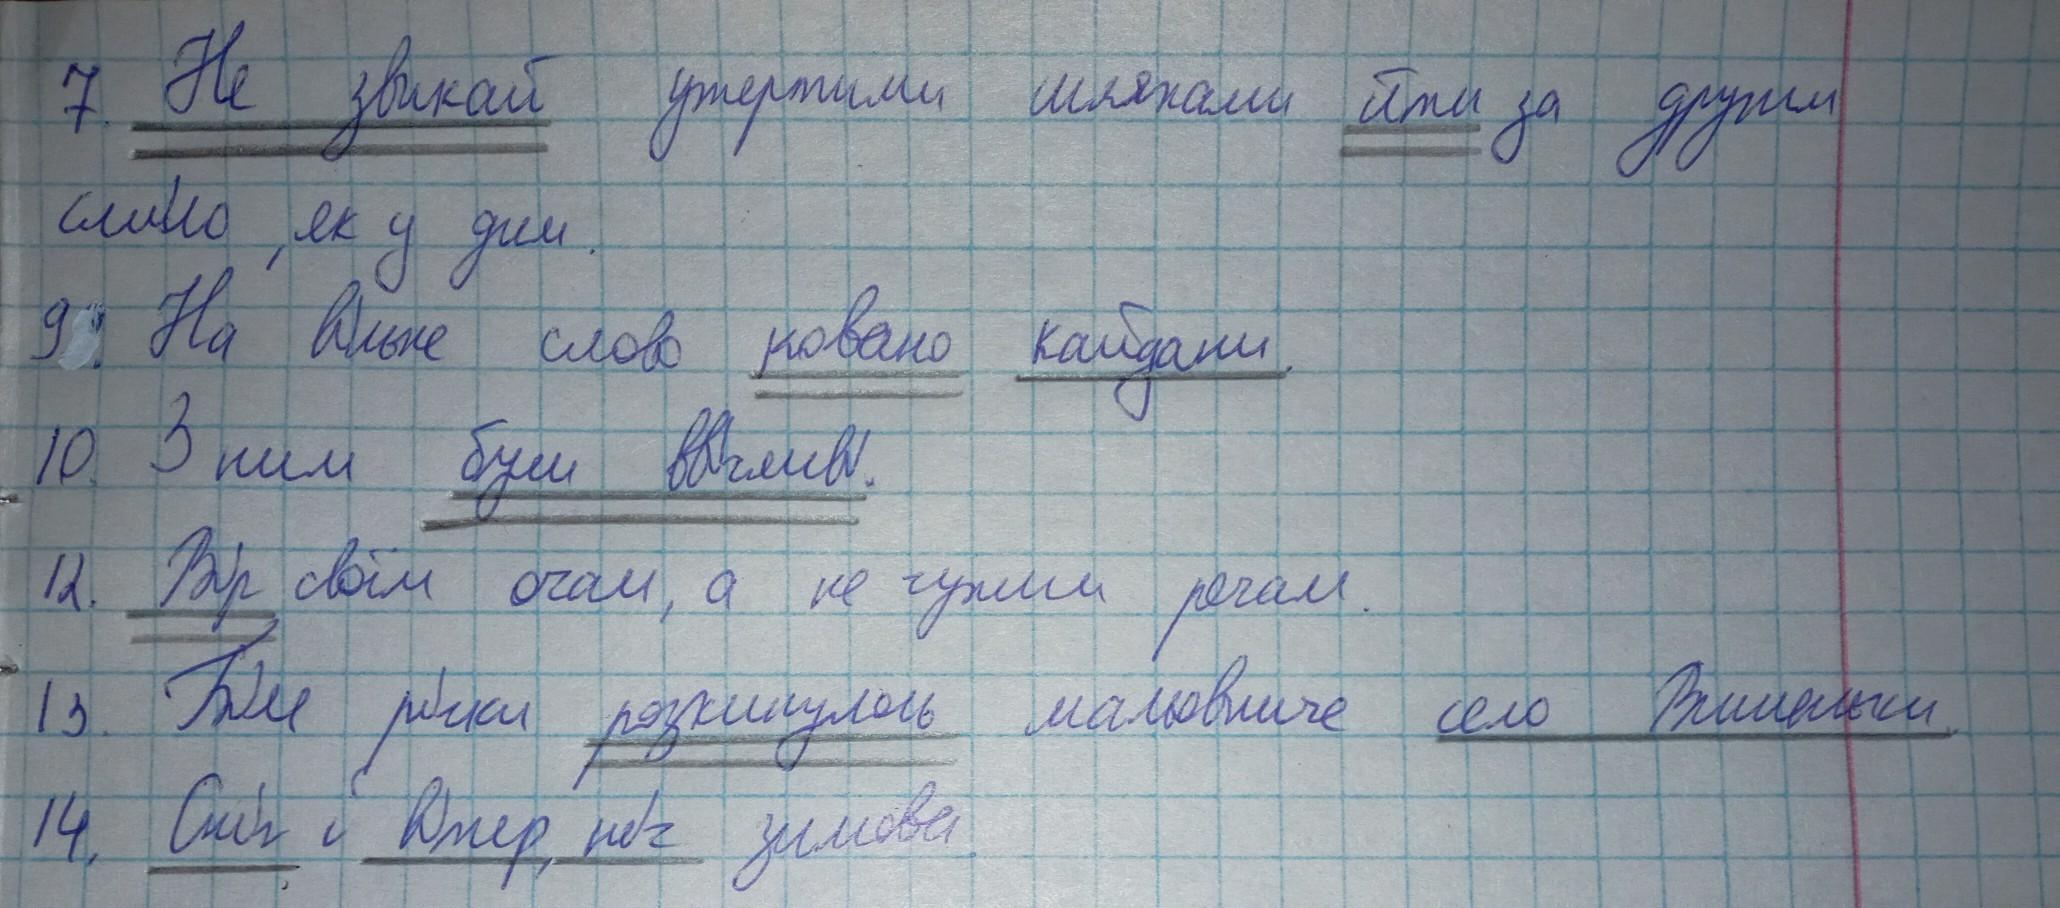 7. Не звикай утертими шляхами йти за другим
сліпо, як у дим.
9. На вільне слово ковано кайдани.
10. З ним будь ввічливі.
12. Вір своїм очам, а не чужим речам.
13. Біля річки розкинулось мальовниче село Вишеньки.
14. Сніг і вітер, ніч зимова